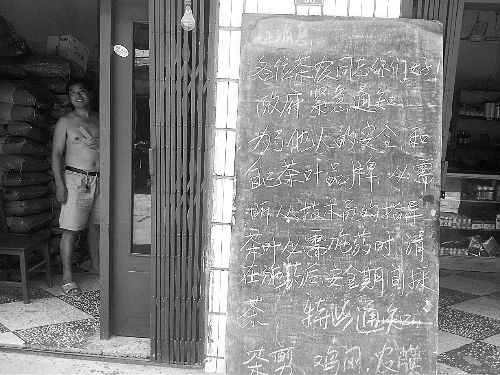 好消息
各位茶农同志你们好!
政府紧急通知
为了他人的安全和
自己茶叶品牌,必需
听从技术员的指导
茶叶必需施药时,请
在施药后安全期间采
茶 特此通知
茶剪 鸡网 农膜